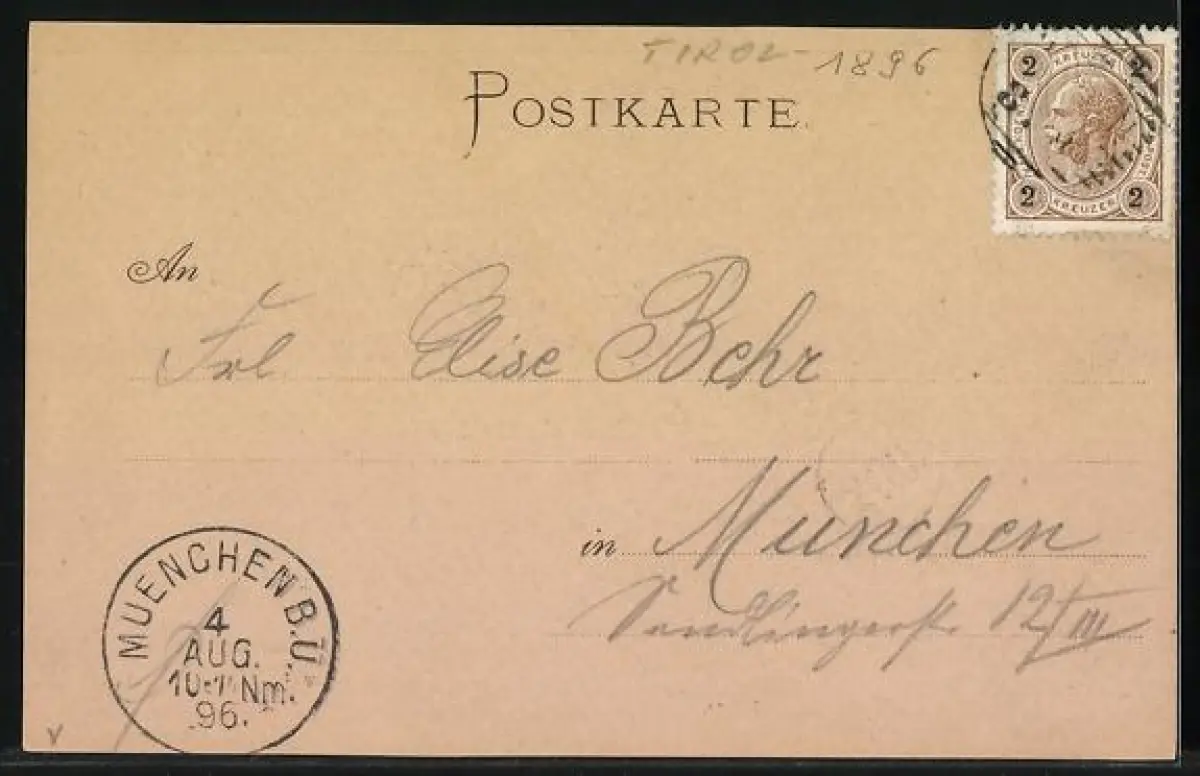 TIROL - 1896
POSTKARTE.
2 KREUZER 2
2 KREUZER 2
An
Frl Elise Behr
in München
Sendlingerstr 12/III
MUENCHEN B.Ü.
4
AUG.
Nm.
96.
v